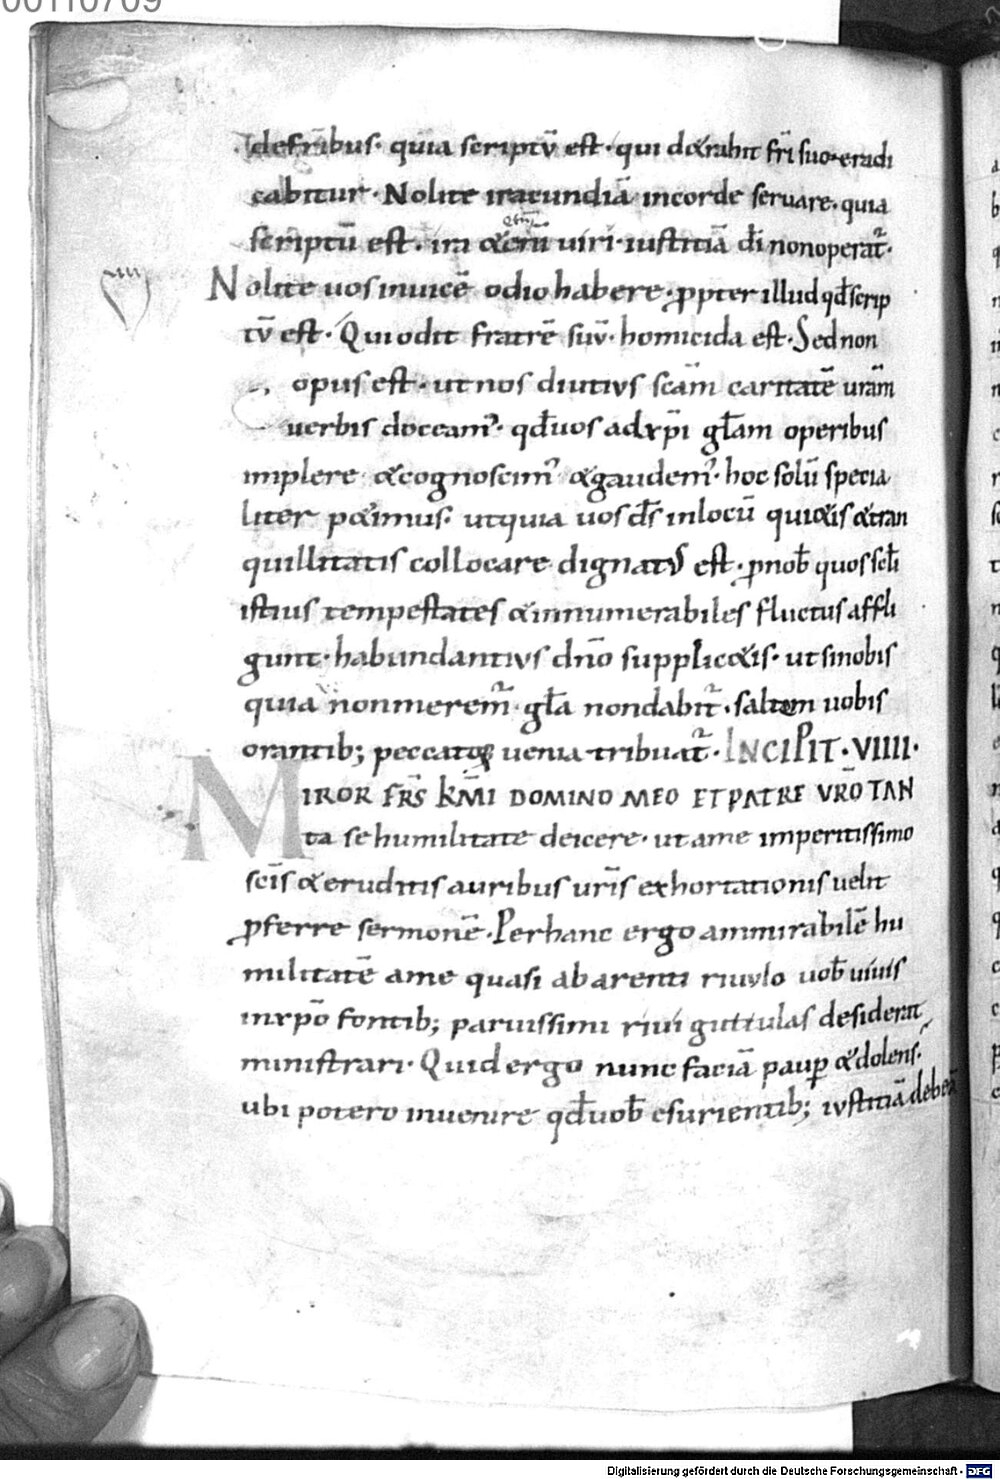 00110709
de fr̄ibus· quia scriptū est· qui detrahit fr̄i suo· eradi
cabitur· Nolite iracundiā incorde seruare· quia
scriptū est· ira etenī uiri· iustitiā d̄i nonoperat᷑·
Nolite uosinuicē odiohabere· ꝓpter illud qđ scrip
tū est· Qui odit fratrē suū· homicida est· Sed non
opus est· ut nos diutius sc̄am caritatē ur̄am
uerbis doceam᷒· qđ uos adxp̄i gl̄am operibus
implere &cognoscim᷒ &gaudem᷒· hoc solū specia
liter p&imus· utquia uos d̄s inlocū qui&is &tran
quillitatis collocare dignatus est· ꝓnob̄ quos scl̄i
istius tempestates &innumerabiles fluctus affli
gunt· habundantius dn̄o supplic&is· ut sinobis
quia nonmerem᷑ gl̄a nondabit᷑· saltem uobis
orantib; peccatoꝝ uenia tribuat᷑· INCIPIT· VIIII·
MIROR FR̄S K̄MI DOMINO MEO ET PATRE VR̄O TAN
ta se humilitate deicere· ut ame imperitissimo
sc̄is &eruditis auribus ur̄is exhortationis uelit
ꝓferre sermonē· Perhanc ergo ammirabilē hu
militatē ame quasi abarenti riuulo uob̄ uiuis
inxp̄o fontib; paruissimi riui guttulas desiderat
ministrari· Quid ergo nunc faciā pauꝑ &dolens·
ubi potero inuenire qđ uob̄ esurientib; iustitiā debeā
Digitalisierung gefördert durch die Deutsche Forschungsgemeinschaft - DFG